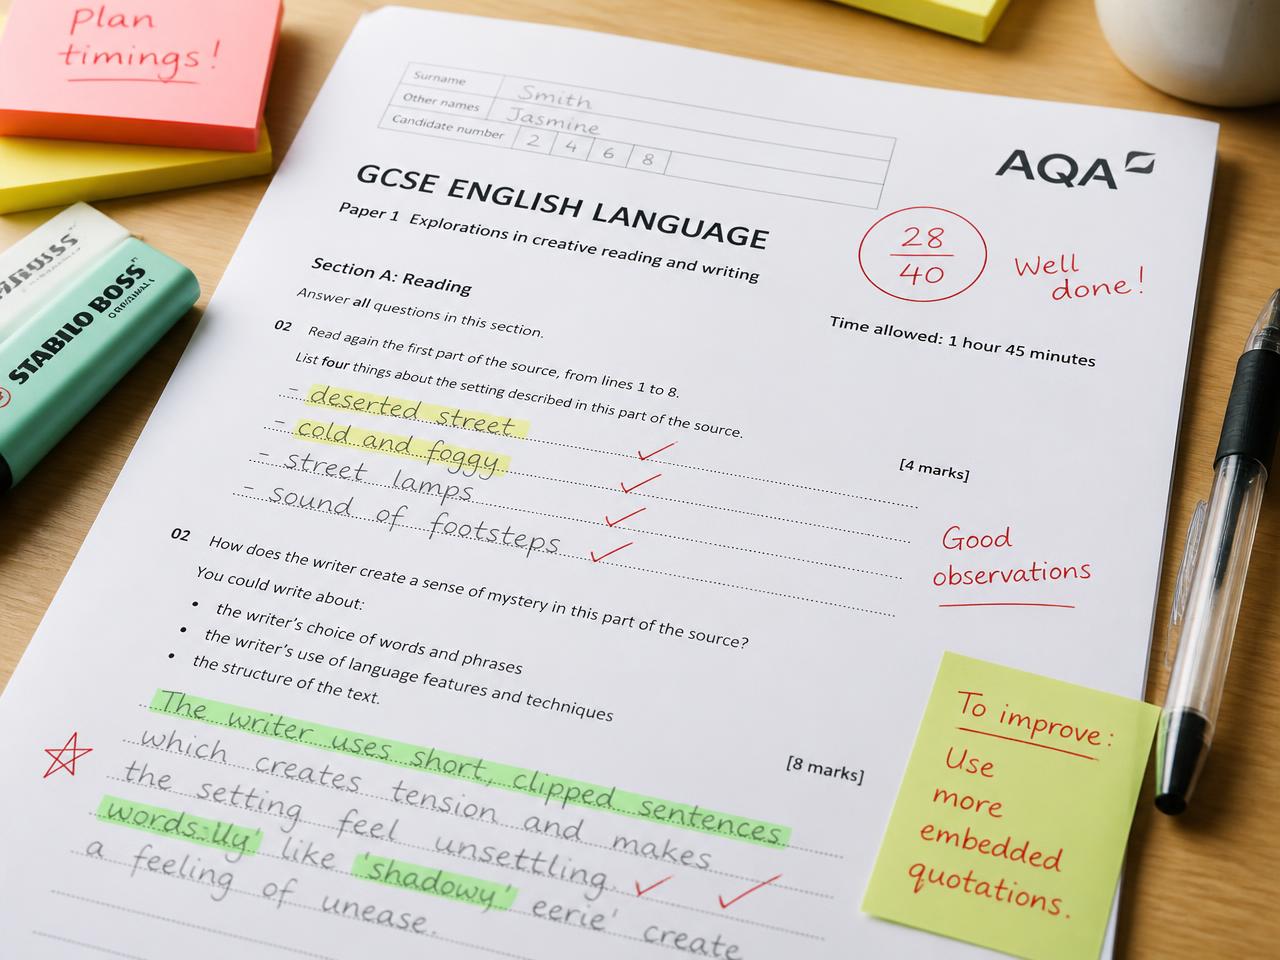 Plan
timings!
STABILO BOSS
ORIGINAL
Surname Smith
Other names Jasmine
Candidate number 2 4 6 8
AQA
GCSE ENGLISH LANGUAGE
Paper 1 Explorations in creative reading and writing
28
40
Well
done!
Time allowed: 1 hour 45 minutes
Section A: Reading
Answer all questions in this section.
02 Read again the first part of the source, from lines 1 to 8.
List four things about the setting described in this part of the source.
- deserted street
- cold and foggy
- street lamps
- sound of footsteps
[4 marks]
Good
observations
02 How does the writer create a sense of mystery in this part of the source?
You could write about:
• the writer's choice of words and phrases
• the writer's use of language features and techniques
• the structure of the text.
[8 marks]
The writer uses short, clipped sentences
which creates tension and makes
the setting feel unsettling.
like 'shadowy' eerie' create
a feeling of unease.
To improve:
Use
more
embedded
quotations.